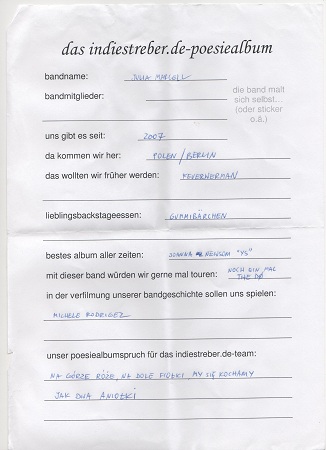 das indiestreber.de-poesiealbum
bandname: JULIA MARCELL
bandmitglieder:
die band malt
sich selbst...
(oder sticker
o.ä.)
uns gibt es seit: 2007
da kommen wir her: POLEN / BERLIN
das wollten wir früher werden: FEUERWERMAN
lieblingsbackstageessen: GUMMIBÄRCHEN
bestes album aller zeiten: JOANNA NEWSOM "YS"
mit dieser band würden wir gerne mal touren: NOCH EIN MAL
THE DØ
in der verfilmung unserer bandgeschichte sollen uns spielen:
MICHELE RODRIGEZ
unser poesiealbumspruch für das indiestreber.de-team:
NA GÓRZE RÓŻE, NA DOLE FIOŁKI MY SIĘ KOCHAMY
JAK DWA ANIOŁKI